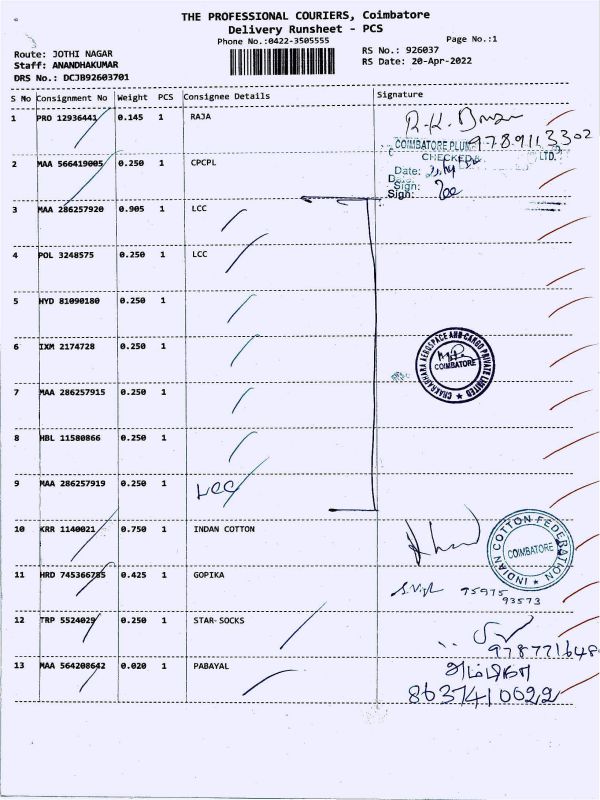 THE PROFESSIONAL COURIERS, Coimbatore
Delivery Runsheet - PCS
Phone No.:0422-3505555
Page No.:1
Route: JOTHI NAGAR
RS No.: 926037
Staff: ANANDHAKUMAR
RS Date: 20-Apr-2022
DRS No.: DCJB92603701
S No Consignment No Weight PCS Consignee Details Signature
1 PRO 12936441 0.145 1 RAJA
9789113302
COIMBATORE
CHECKED
LTD.
Date:
Sign:
2 MAA 566419005 0.250 1 CPCPL
3 MAA 286257920 0.905 1 LCC
4 POL 3248575 0.250 1 LCC
5 HYD 81090180 0.250 1
6 IXM 2174728 0.250 1
CHAKRADHARA AEROSPACE AND CARGO PRIVATE LIMITED
COIMBATORE
7 MAA 286257915 0.250 1
8 HBL 11580866 0.250 1
9 MAA 286257919 0.250 1 LCC
10 KRR 1140021 0.750 1 INDAN COTTON
INDIAN COTTON FEDERATION
COIMBATORE
11 HRD 745366785 0.425 1 GOPIKA
95975
93573
12 TRP 5524029 0.250 1 STAR-SOCKS
978771648
13 MAA 564208642 0.020 1 PABAYAL
8637410022